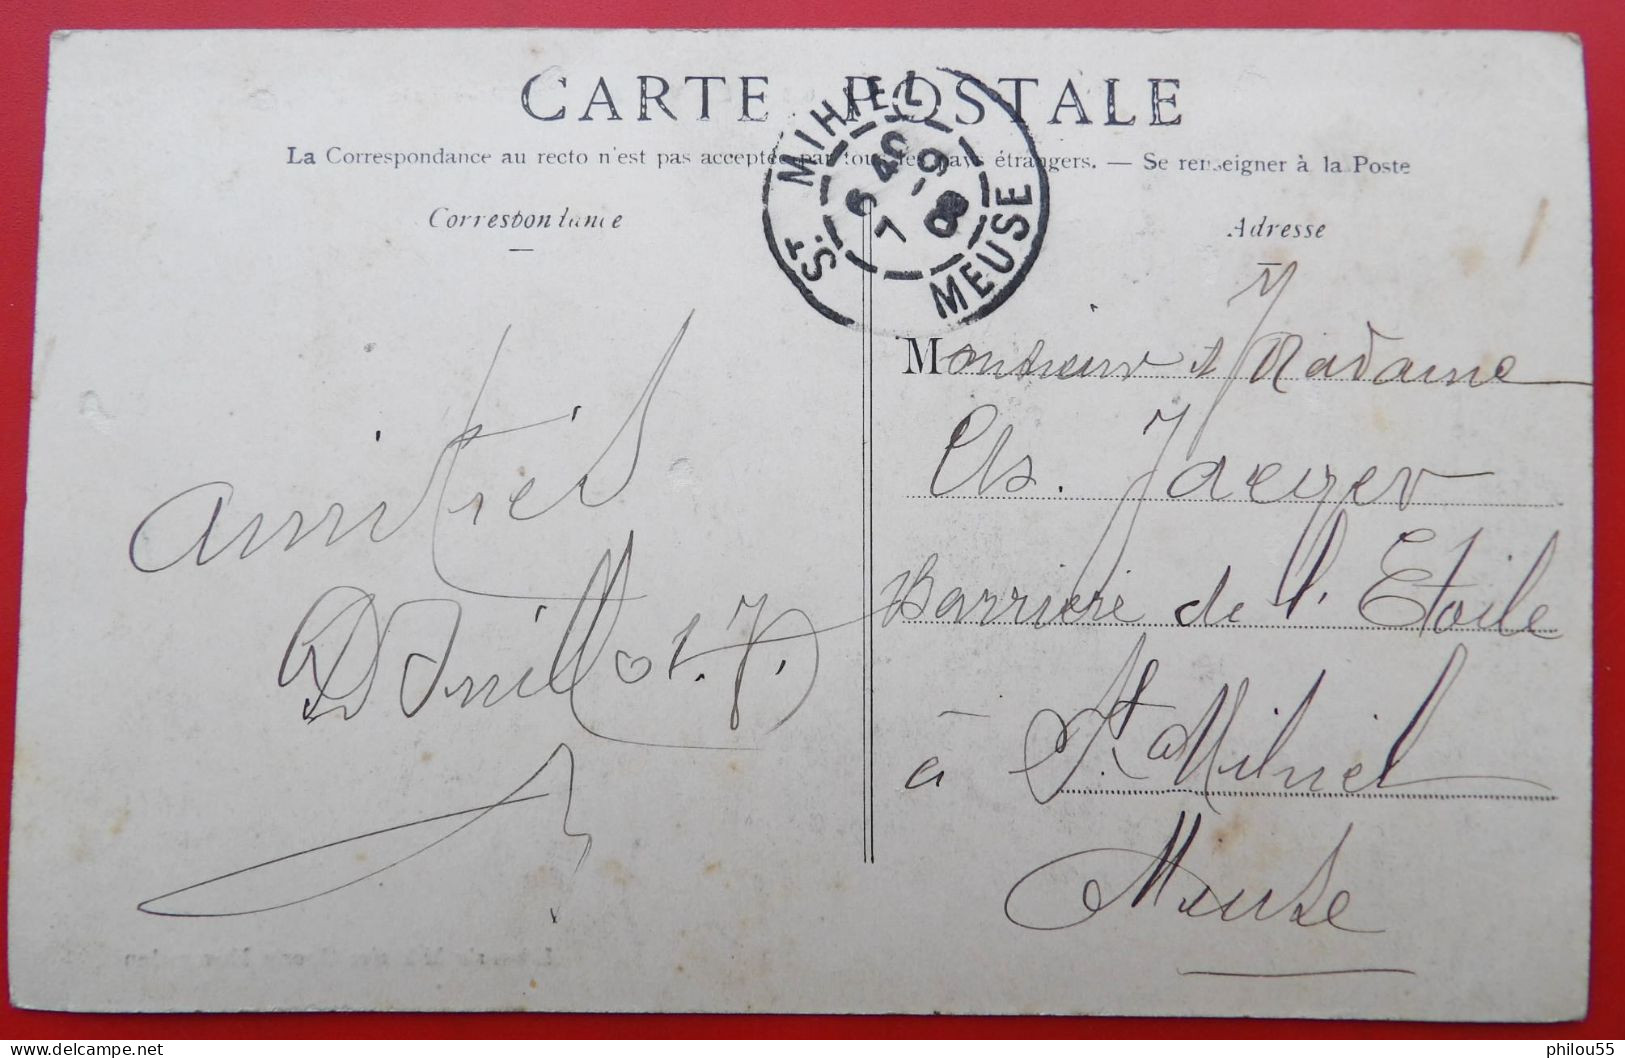 CARTE POSTALE
La Correspondance au recto n'est pas acceptée par tous les pays étrangers. — Se renseigner à la Poste
Correspondance
Adresse
ST. MIHIEL
6 40
7 -9
08
MEUSE
Monsieur & Madame
Chs. Jaeger
Barrière de l'Etoile
à St Mihiel
Meuse
amitiés
philou55
delcampe.net